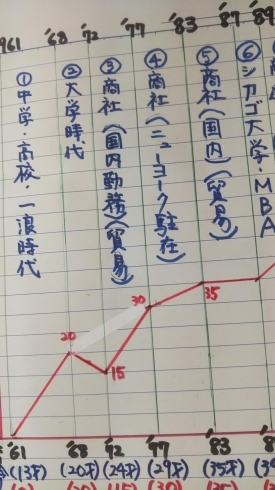 961 '68 '72 '77 '83 '87 '89
①中学・高校・一浪時代
②大学時代
③商社(国内勤務)(貿易)
④商社(ニューヨーク駐在)
⑤商社(国内)(貿易)
⑥シカゴ大学・MBA
20
15
30
35
'61 '68 '72 '77 '83
(13才) (20才) (24才) (29才) (35才)
(20) (15) (30) (35)